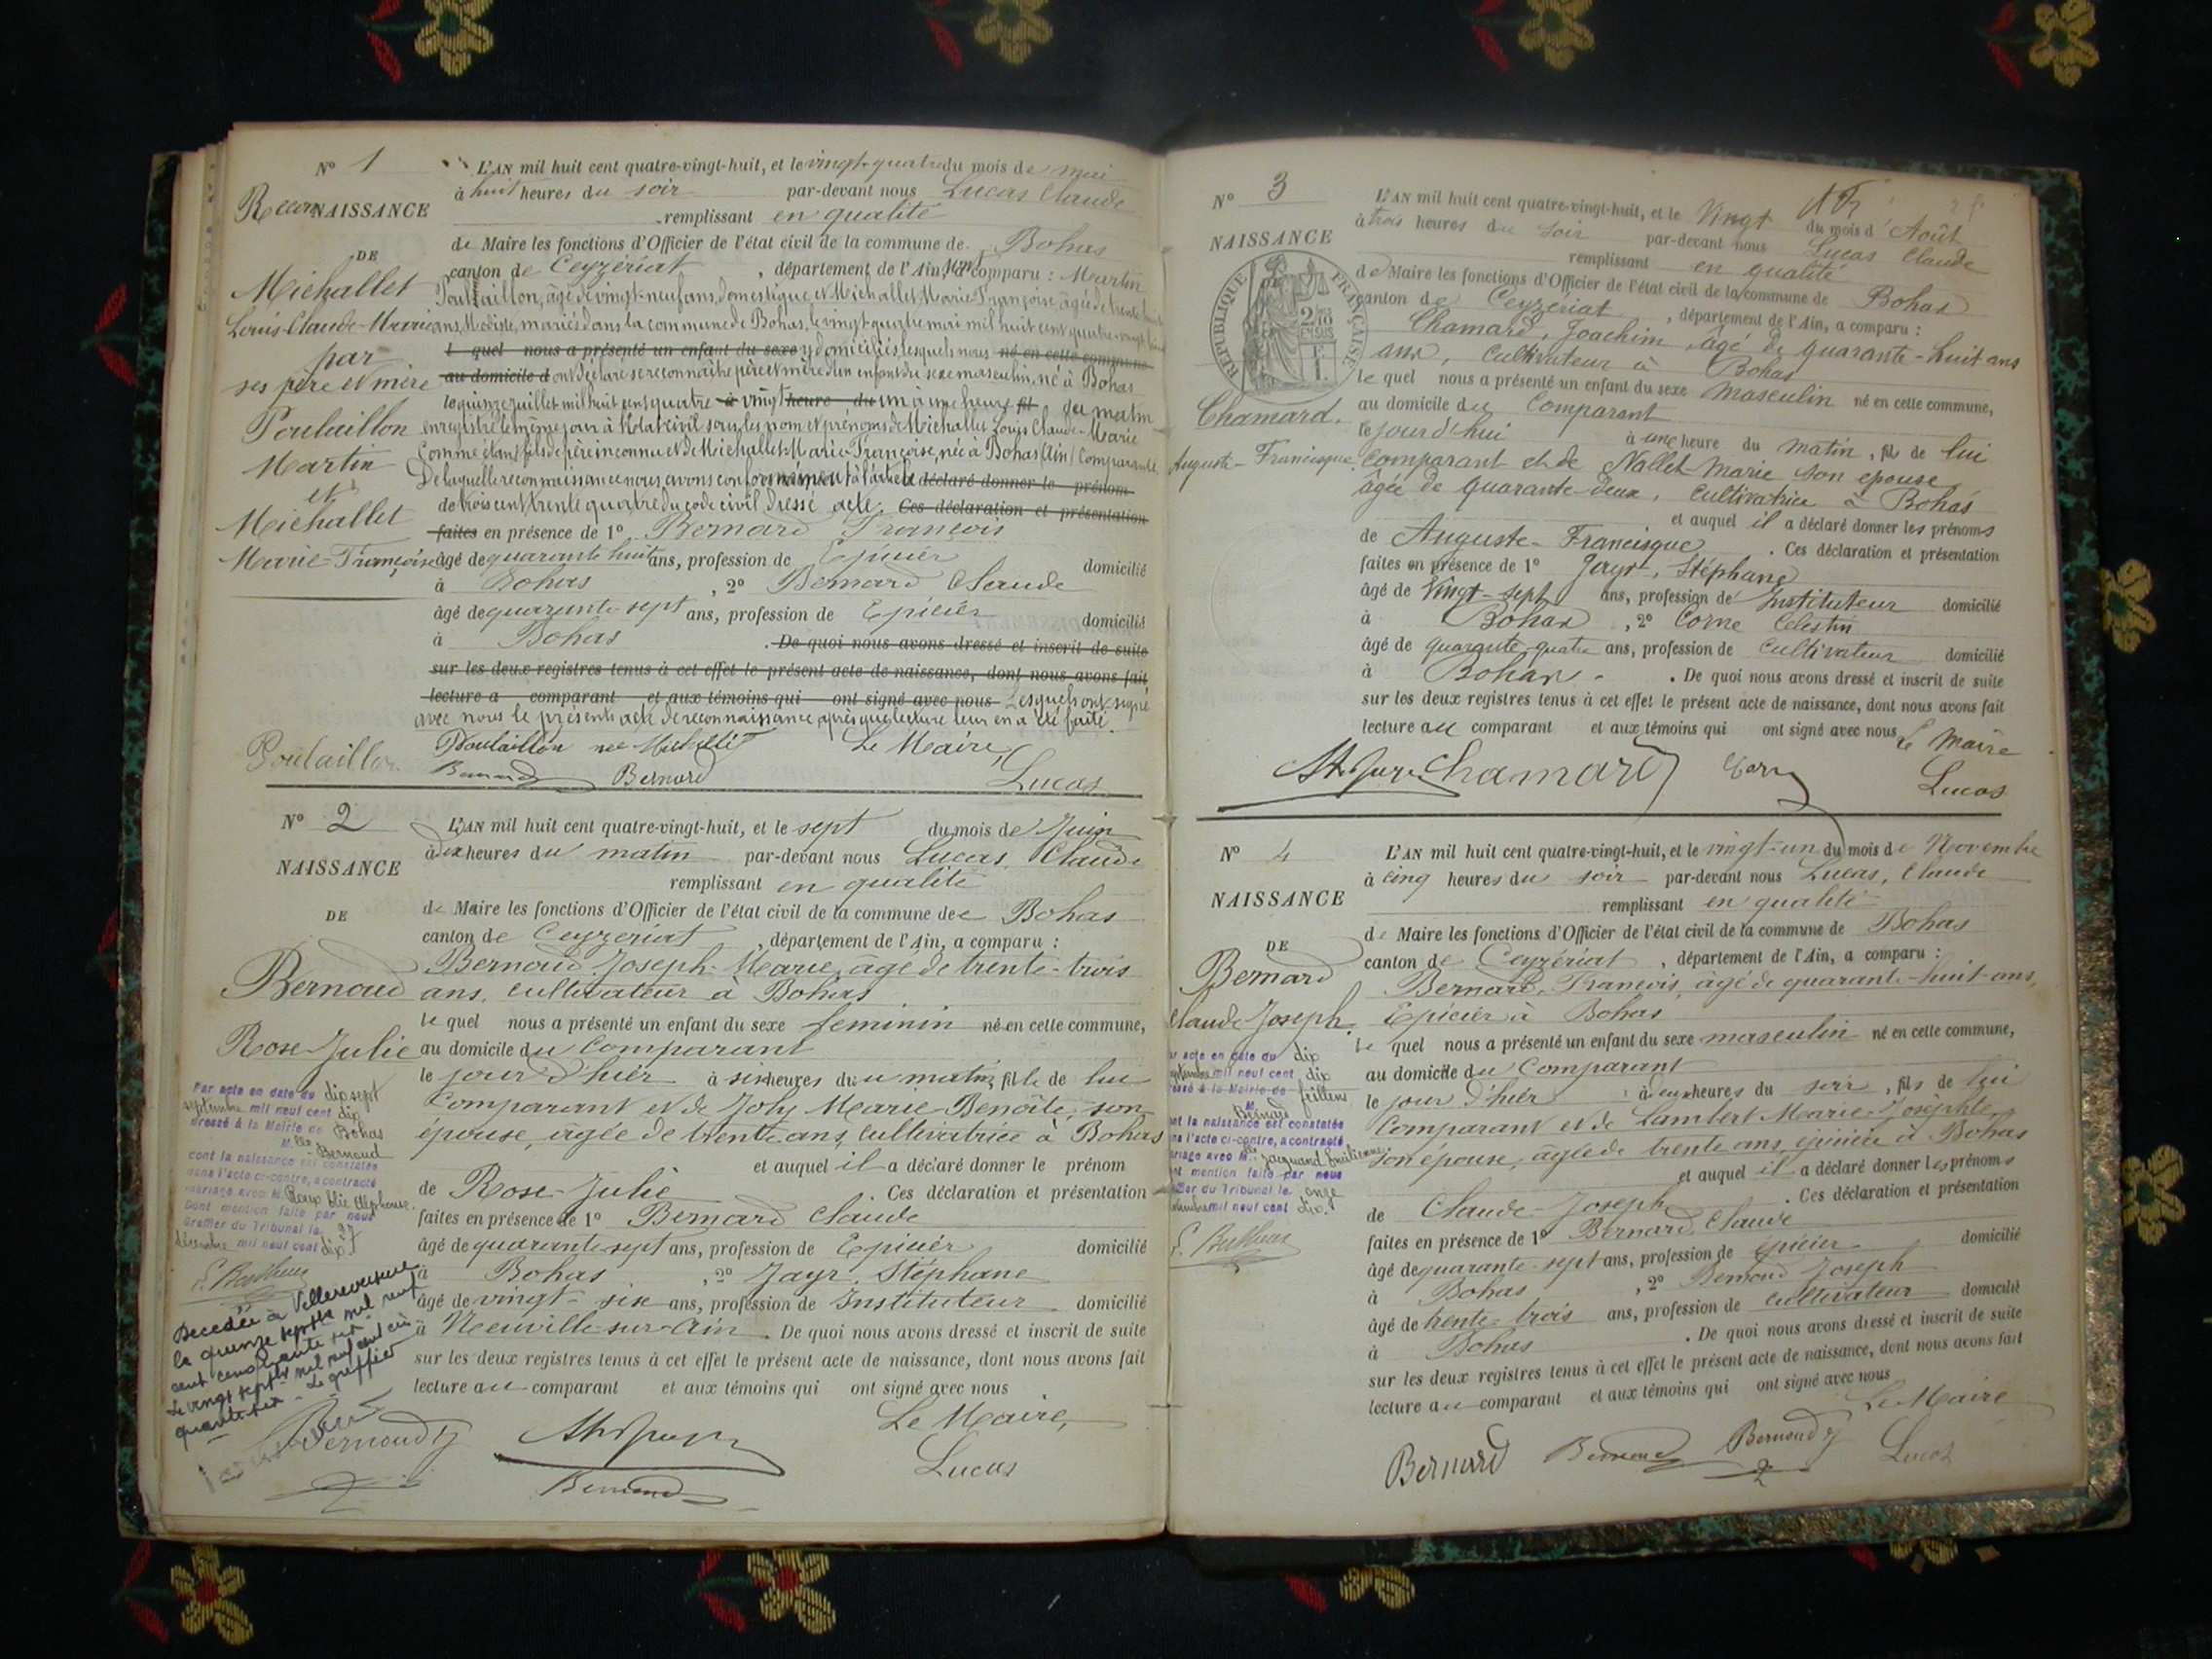 N° 1
ReconNAISSANCE
DE
Michallet
Louis-Claude-Marie
par
ses père et mère
Poulaillon
Martin
et
Michallet
Marie-Françoise
L'AN mil huit cent quatre-vingt-huit, et le vingt-quatre du mois de mai
à huit heures du soir par-devant nous Lucas Claude
remplissant en qualité
de Maire les fonctions d'Officier de l'état civil de la commune de Bohas
canton de Ceyzériat, département de l'Ain, comparu : Martin
Poulaillon, âgé de vingt-neuf ans, domestique et Michallet Marie Françoise âgée de trente huit
ans, Modiste, mariés dans la commune de Bohas, le vingt quatre mai mil huit cent quatre-vingt huit
l quel nous a présenté un enfant du sexe y domiciliés lesquels nous né en cette commune
au domicile d ont déclaré se reconnaître père et mère d'un enfant du sexe masculin, né à Bohas
le quinze juillet mil huit cent quatre à vingt heure du un à une heure fil du matin
enregistré le même jour à l'état civil sous les nom et prénoms de Michallet Louis Claude-Marie
Comme étant fils de père inconnu et de Michallet Marie-Françoise, née à Bohas (Ain) Comparante
De laquelle reconnaissance nous avons conformément à l'article déclaré donner le prénom
de trois cent trente quatre du code civil dressé acte. Ces déclaration et présentation
faites en présence de 1° Bernard François
âgé de quarante huit ans, profession de Epicier domicilié
à Bohas, 2° Bernard Claude
âgé de quarante sept ans, profession de Epicier domicilié
à Bohas. De quoi nous avons dressé et inscrit de suite
sur les deux registres tenus à cet effet le présent acte de naissance, dont nous avons fait
lecture a comparant et aux témoins qui ont signé avec nous Lesquels ont signé
avec nous le présent acte de reconnaissance après que lecture leur en a été faite.
Poulaillon Poulaillon née Michallet Le Maire,
Bernard Bernard Lucas
N° 2
NAISSANCE
DE
Bernoud
Rose-Julie
Par acte en date du dix sept
septembre mil neuf cent dix
dressé à la Mairie de Bohas
Mlle Bernoud
dont la naissance est constatée
dans l'acte ci-contre, a contracté
mariage avec M. Roux Alphonse
Dont mention faite par nous
Greffier du Tribunal le 27
décembre mil neuf cent dix
Décédée à Villereversure
le quinze septbre mil neuf
cent cinquante six
Le vingt septbre mil neuf cent cin
quante-six - Le greffier
L'AN mil huit cent quatre-vingt-huit, et le sept du mois de Juin
à dix heures du matin par-devant nous Lucas Claude
remplissant en qualité
de Maire les fonctions d'Officier de l'état civil de la commune de Bohas
canton de Ceyzériat, département de l'Ain, a comparu :
Bernoud Joseph-Marie, âgé de trente-trois
ans, cultivateur à Bohas
le quel nous a présenté un enfant du sexe féminin né en cette commune,
au domicile du Comparant
le jour d'hier à six heures du matin, fille de lui
Comparant et de Joly Marie-Benoîte, son
épouse, âgée de trente ans, cultivatrice à Bohas
et auquel il a déclaré donner le prénom
de Rose-Julie. Ces déclaration et présentation
faites en présence de 1° Bernard Claude
âgé de quarante-sept ans, profession de Epicier domicilié
à Bohas, 2° Jayr, Stéphane
âgé de vingt-six ans, profession de Instituteur domicilié
à Neuville-sur-Ain. De quoi nous avons dressé et inscrit de suite
sur les deux registres tenus à cet effet le présent acte de naissance, dont nous avons fait
lecture au comparant et aux témoins qui ont signé avec nous
Le Maire,
Bernoud Lucas
Bernard
N° 3
NAISSANCE
RÉPUBLIQUE FRANÇAISE
Chamard.
Auguste-Francisque.
L'AN mil huit cent quatre-vingt-huit, et le Vingt du mois d'Août
à trois heures du soir par-devant nous Lucas Claude
remplissant en qualité
de Maire les fonctions d'Officier de l'état civil de la commune de Bohas
canton de Ceyzériat, département de l'Ain, a comparu :
Chamard, Joachim, âgé de quarante-huit ans
ans, cultivateur à Bohas
le quel nous a présenté un enfant du sexe masculin né en cette commune,
au domicile du Comparant
le jour d'hui à une heure du matin, fils de lui
comparant et de Nallet Marie son épouse
âgée de quarante-deux, cultivatrice à Bohas
et auquel il a déclaré donner les prénoms
de Auguste-Francisque. Ces déclaration et présentation
faites en présence de 1° Jayr, Stéphane
âgé de Vingt-sept ans, profession de Instituteur domicilié
à Bohas, 2° Corne Célestin
âgé de quarante quatre ans, profession de cultivateur domicilié
à Bohas. De quoi nous avons dressé et inscrit de suite
sur les deux registres tenus à cet effet le présent acte de naissance, dont nous avons fait
lecture au comparant et aux témoins qui ont signé avec nous Le Maire
Chamard Lucas
N° 4
NAISSANCE
DE
Bernard
Claude Joseph.
acte en date du dix
septembre mil neuf cent dix
à la Mairie de feillens
M. Bernard
la naissance est constatée
l'acte ci-contre, a contracté
avec Mlle Jacquand
mention faite par nous
du Tribunal le onze
mil neuf cent dix.
L'AN mil huit cent quatre-vingt-huit, et le vingt-un du mois de Novembre
à cinq heures du soir par-devant nous Lucas, Claude
remplissant en qualité
de Maire les fonctions d'Officier de l'état civil de la commune de Bohas
canton de Ceyzériat, département de l'Ain, a comparu :
Bernard, François, âgé de quarante-huit-ans,
Epicier à Bohas
le quel nous a présenté un enfant du sexe masculin né en cette commune,
au domicile du Comparant
le jour d'hier à deux heures du soir, fils de lui
Comparant et de Lambert Marie-Josephte
son épouse, âgée de trente ans, épicière à Bohas
et auquel il a déclaré donner les prénoms
de Claude-Joseph. Ces déclaration et présentation
faites en présence de 1° Bernard, Claude
âgé de quarante-sept ans, profession de épicier domicilié
à Bohas, 2° Bernoud Joseph
âgé de trente-trois ans, profession de cultivateur domicilié
à Bohas. De quoi nous avons dressé et inscrit de suite
sur les deux registres tenus à cet effet le présent acte de naissance, dont nous avons fait
lecture au comparant et aux témoins qui ont signé avec nous
Le Maire
Bernard Bernard Bernoud Lucas